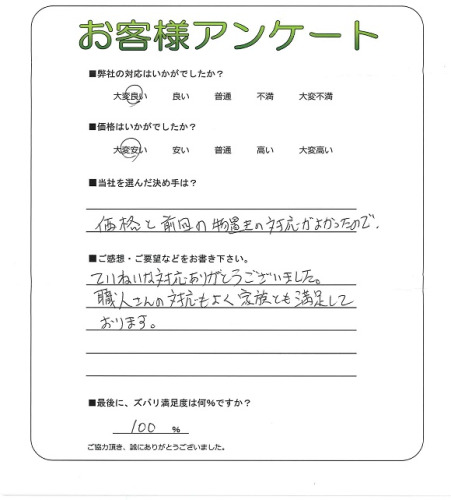 お客様アンケート
■弊社の対応はいかがでしたか？
大変良い 良い 普通 不満 大変不満
■価格はいかがでしたか？
大変安い 安い 普通 高い 大変高い
■当社を選んだ決め手は？
価格と前回の物置きの対応がよかったので。
■ご感想・ご要望などをお書き下さい。
ていねいな対応ありがとうございました。
職人さんの対応もよく家族とも満足して
おります。
■最後に、ズバリ満足度は何％ですか？
100 ％
ご協力頂き、誠にありがとうございました。